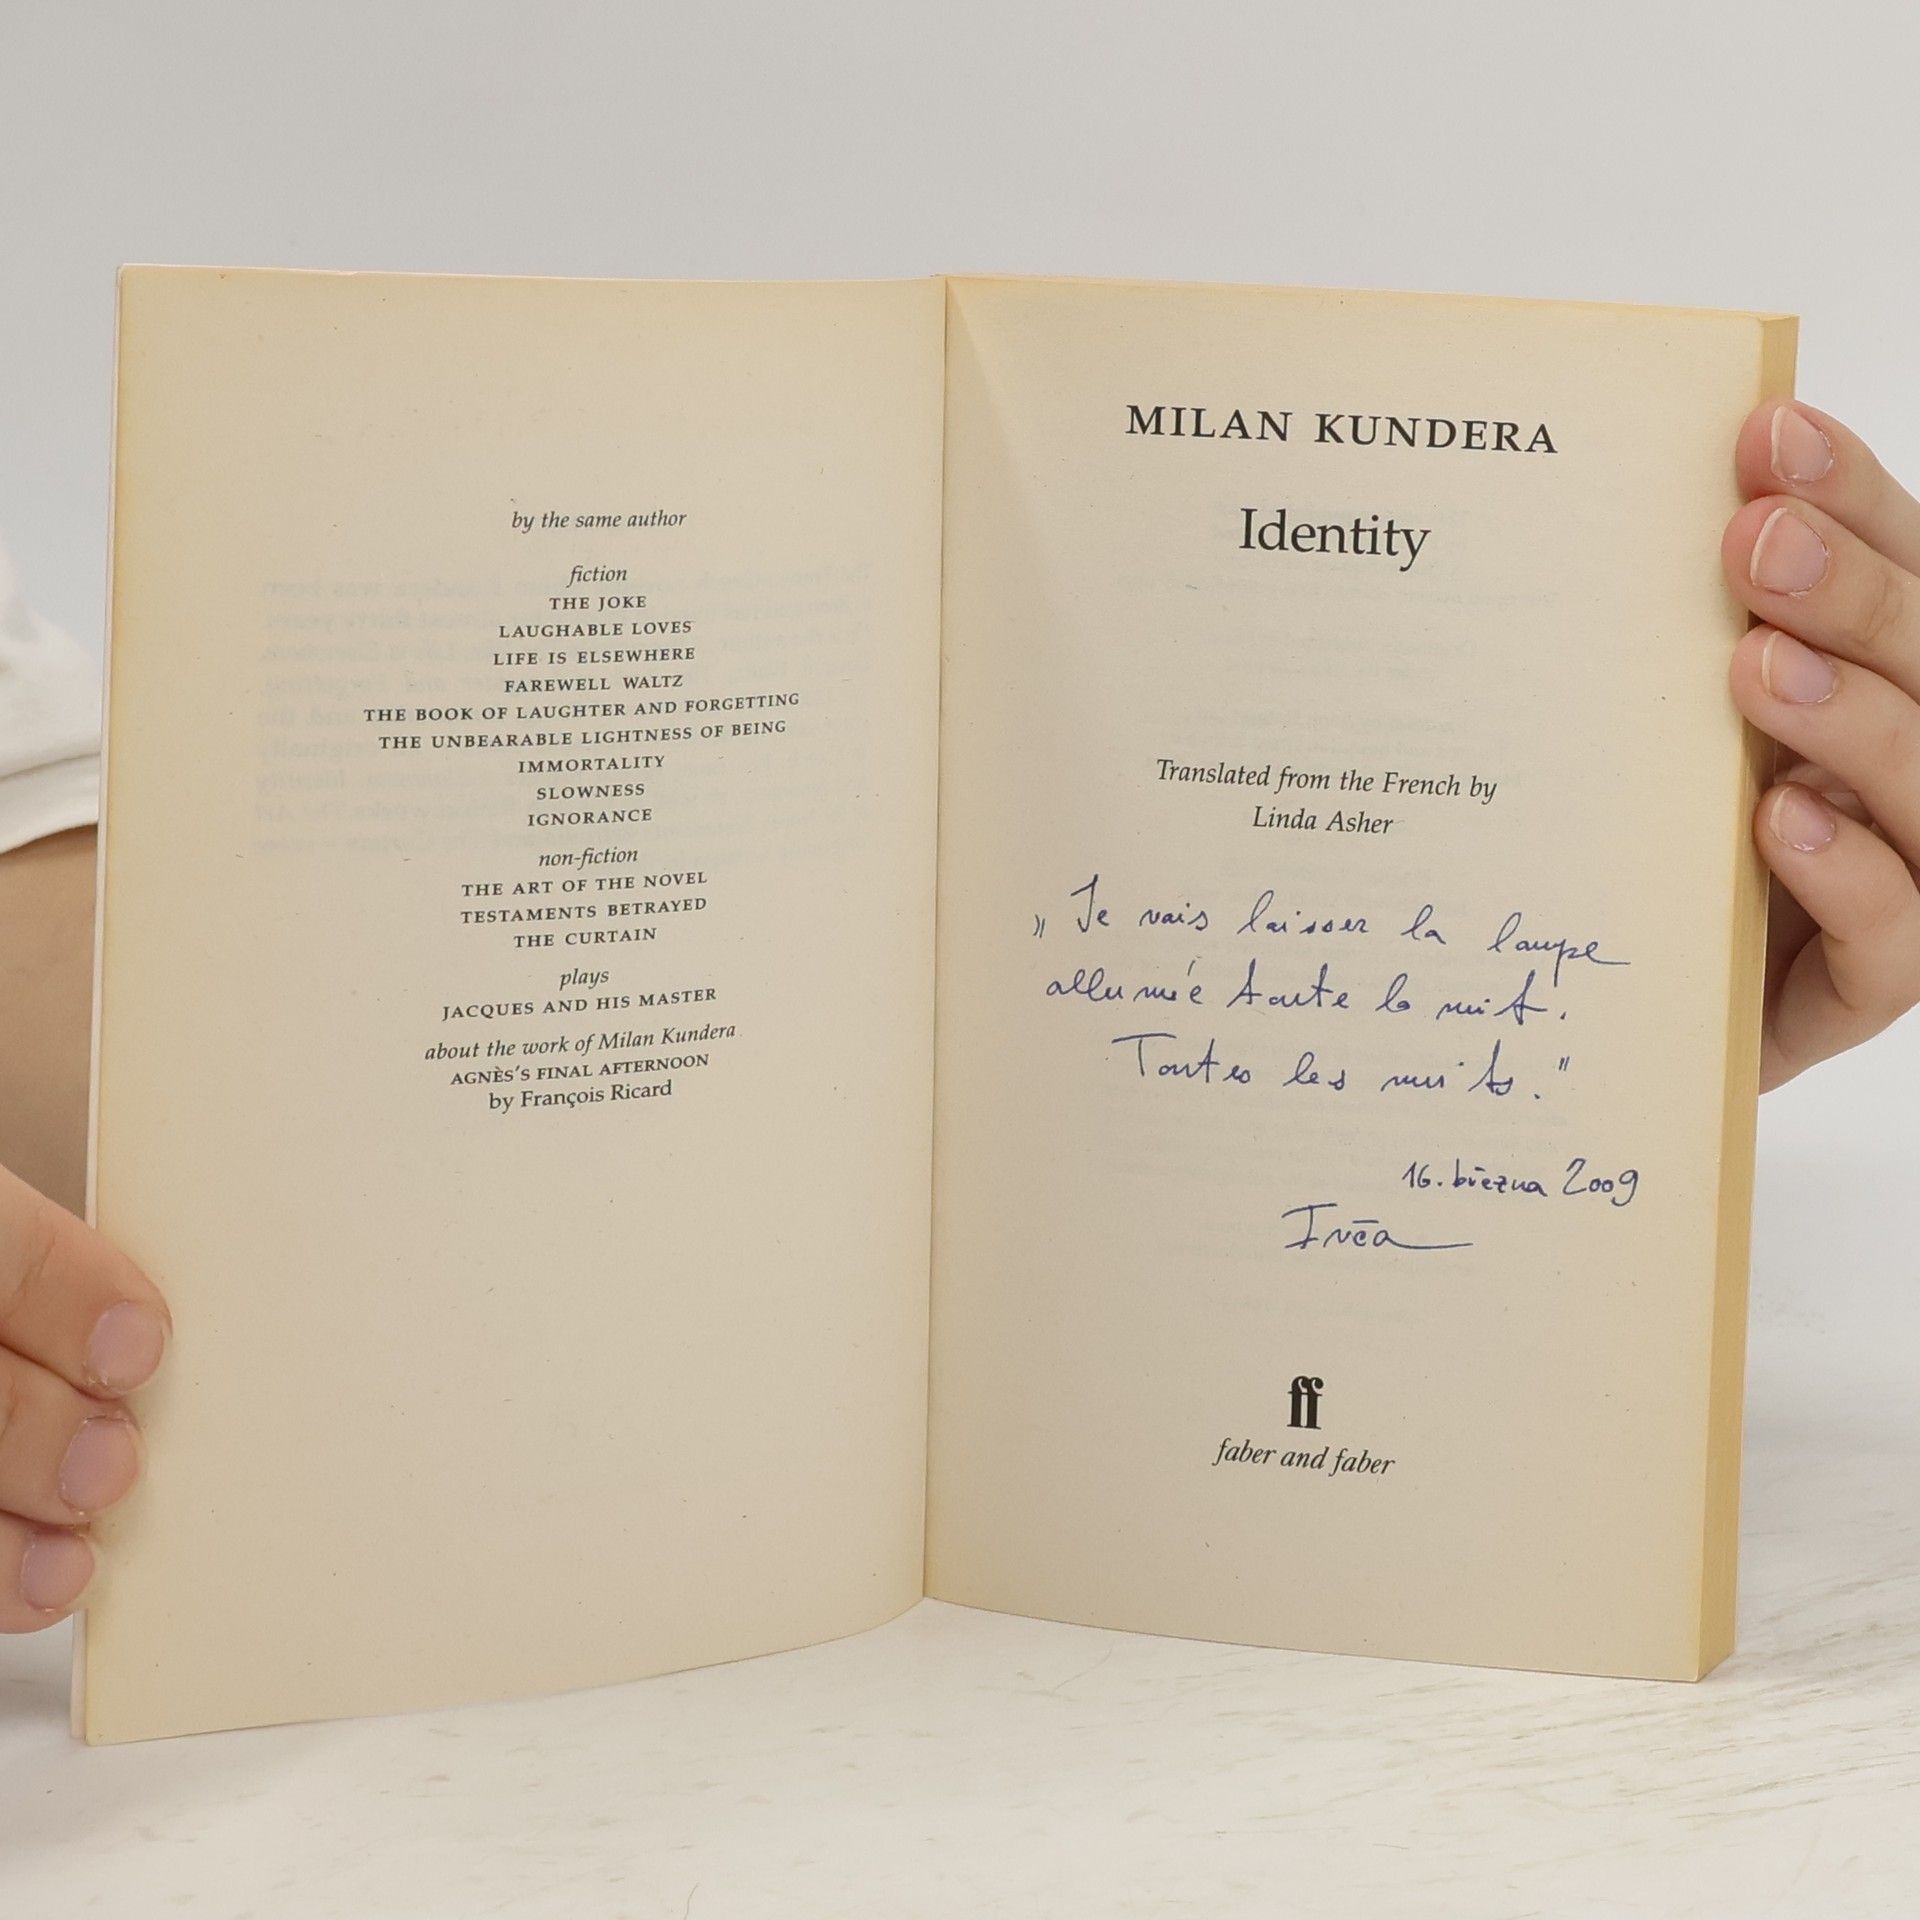 by the same author
fiction
THE JOKE
LAUGHABLE LOVES
LIFE IS ELSEWHERE
FAREWELL WALTZ
THE BOOK OF LAUGHTER AND FORGETTING
THE UNBEARABLE LIGHTNESS OF BEING
IMMORTALITY
SLOWNESS
IGNORANCE
non-fiction
THE ART OF THE NOVEL
TESTAMENTS BETRAYED
THE CURTAIN
plays
JACQUES AND HIS MASTER
about the work of Milan Kundera
AGNÈS'S FINAL AFTERNOON
by François Ricard
MILAN KUNDERA
Identity
Translated from the French by
Linda Asher
„Je vais laisser la lampe
allumée toute la nuit.
Toutes les nuits."
16. března 2009
Ivča
ff
faber and faber